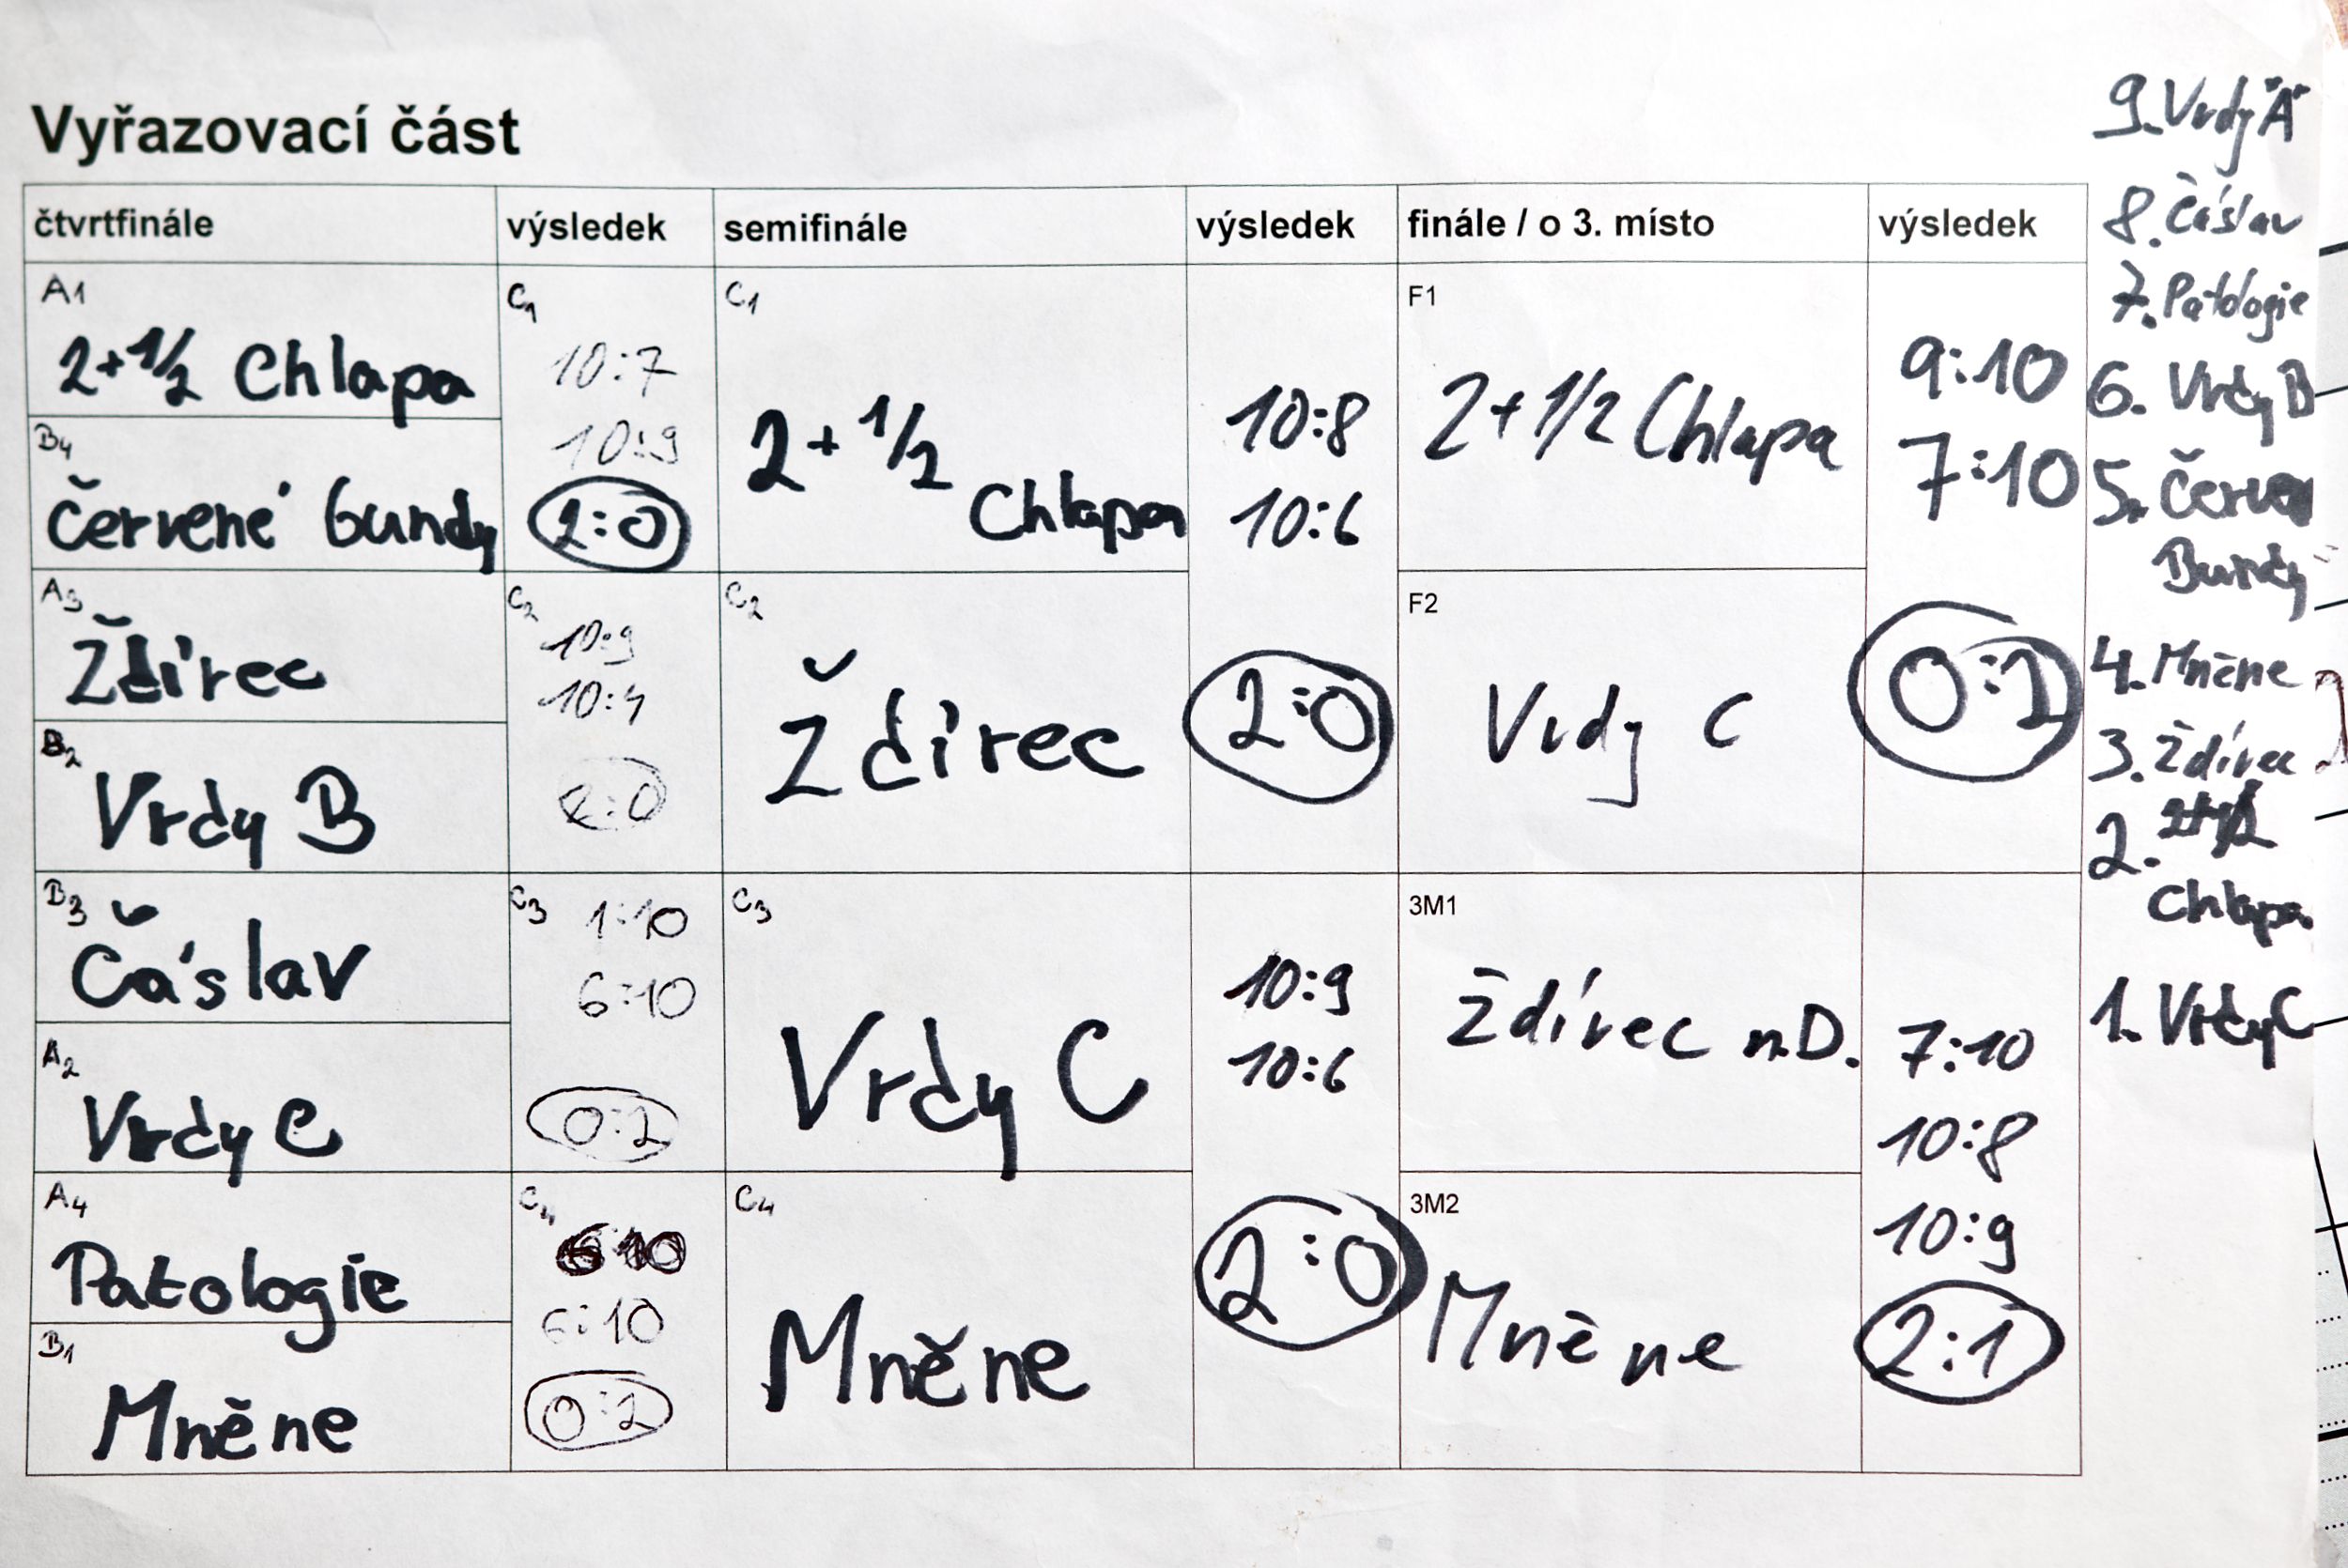 Vyřazovací část
čtvrtfinále výsledek semifinále výsledek finále / o 3. místo výsledek
A1
2+1/2 Chlapa
B4
Červené bundy
C1
10:7
10:9
2:0
A3
Ždírec
B2
Vrdy B
C2
10:9
10:4
2:0
B3
Čáslav
A2
Vrdy C
C3
1:10
6:10
0:2
A4
Patologie
B1
Mněne
C4
6:10
6:10
0:2
C1
2+1/2
Chlapa
C2
Ždírec
10:8
10:6
2:0
C3
Vrdy C
C4
Mněne
10:9
10:6
2:0
F1
2+1/2 Chlapa
F2
Vrdy C
9:10
7:10
0:2
3M1
Ždírec n.D.
3M2
Mněne
7:10
10:8
10:9
2:1
9. Vrdy "A"
8. Čáslav
7. Patologie
6. Vrdy B
5.
Bundy
4. Mněne
3. Ždírec
2. 2+1/2
Chlapa
1. Vrdy C